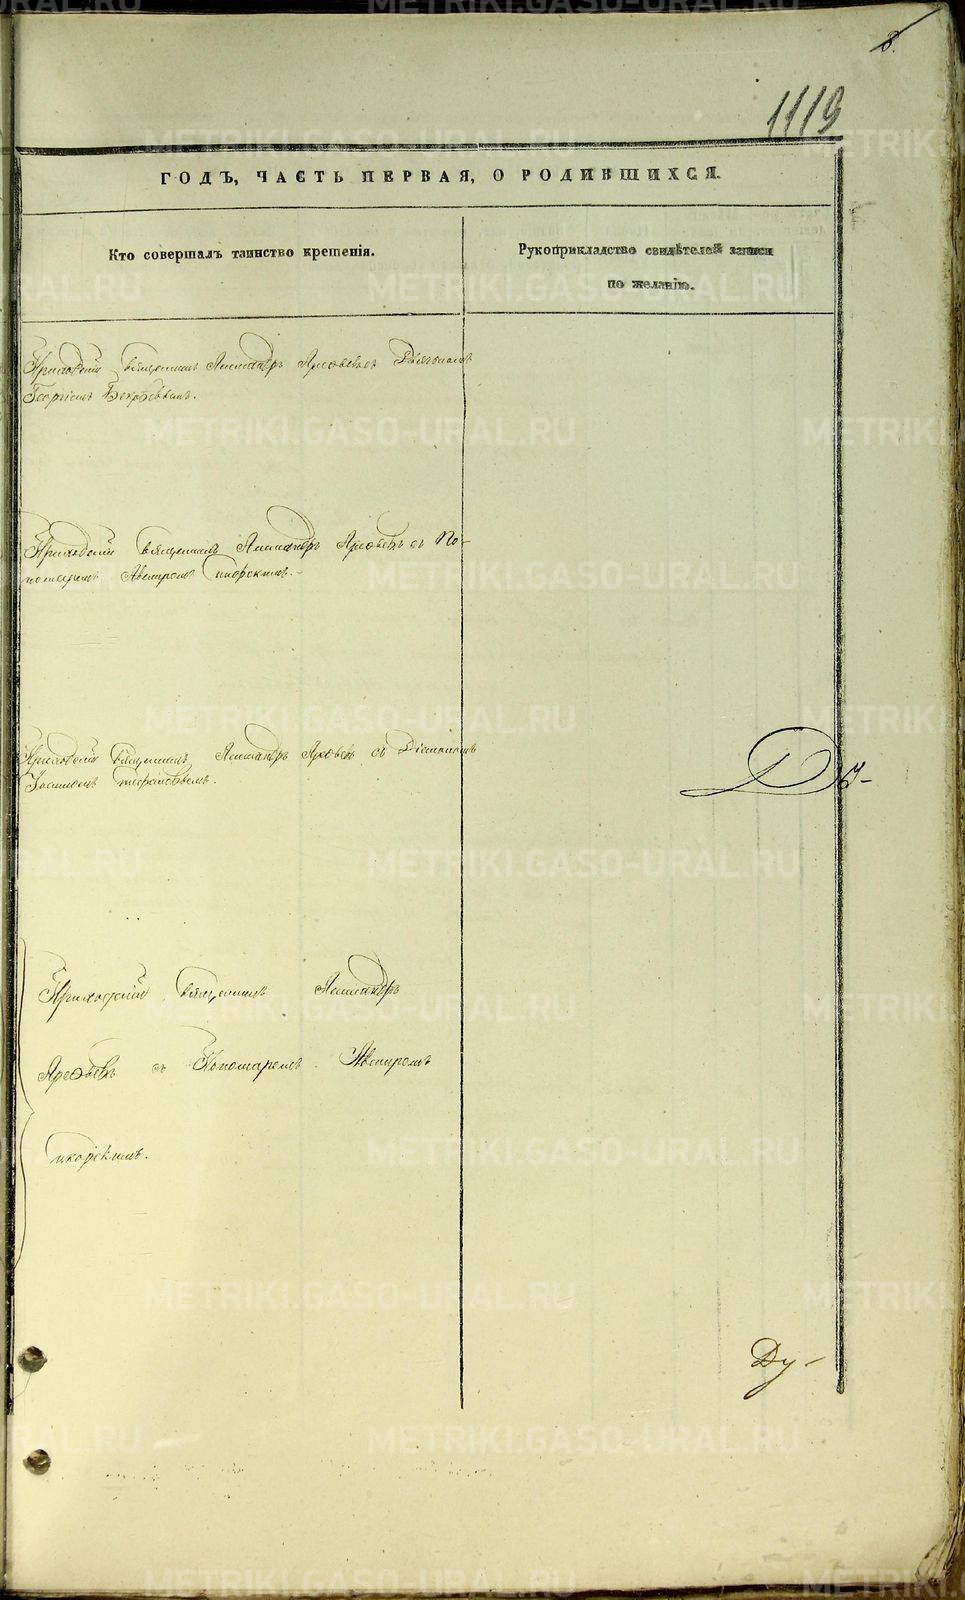 8.
1119
ГОДЪ, ЧАСТЬ ПЕРВАЯ, О РОДИВШИХСЯ.
Кто совершалъ таинство крещенія.
Рукоприкладство свидѣтелей записи
по желанію.
Приходскій Священникъ Александръ Арефьевъ съ Діакономъ
Георгіемъ
Приходскій Священникъ Александръ Арефьевъ съ По-
номаремъ Авениромъ
Приходскій Священникъ Александръ Арефьевъ съ
Іоанномъ
Приходскій Священникъ Александръ
Арефьевъ съ Пономаремъ Авениромъ
Ду-
METRIKI.GASO-URAL.RU